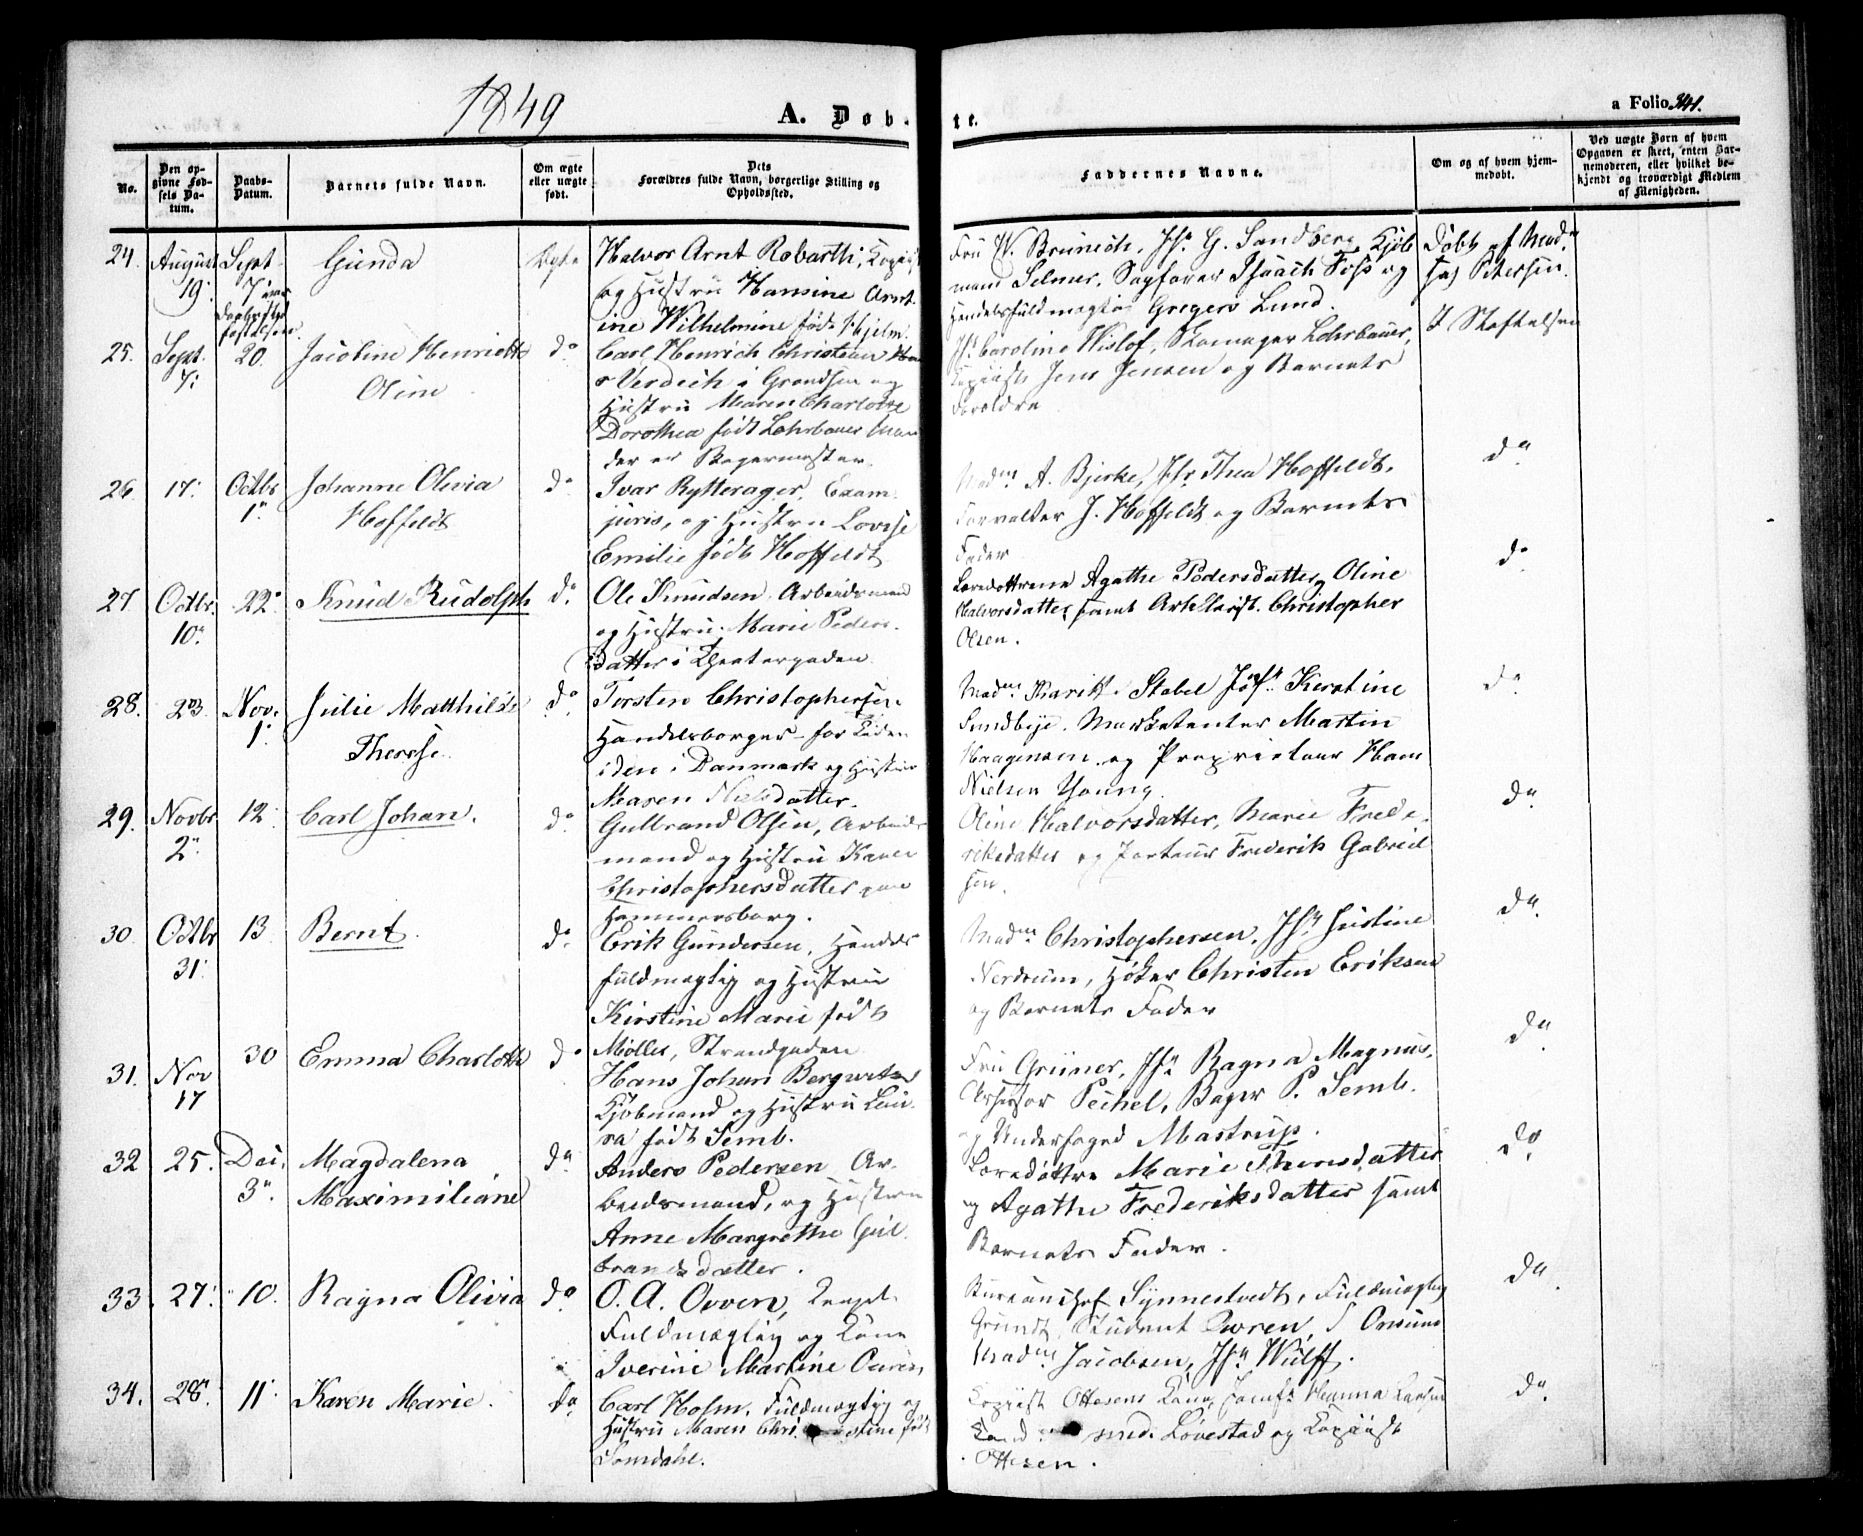 1849
A. Døbte.
a Folio 341.
No.
Den opgivne Fødsels Datum.
Daabs-Datum.
Barnets fulde Navn.
Om ægte eller uægte født.
Dets Forældres fulde Navn, borgerlige Stilling og Opholdssted.
Faddernes Navne.
Om og af hvem hjemmedøbt.
Ved uægte Børn af hvem Opgaven er skeet, enten Barnemoderen, eller hvilket bekjendt og troværdigt Medlem af Menigheden.
24. August 19. Sept 7 Gunda Ægte
Halvor Arnt Robarth, Kopi
og Hustru Hansine Arnt
ine Wilhelmine født Hjelm.
Fru W. Brunech, Jfr. G. Sandberg, Kjøb
mand Selmer, Sagfører Isaach Foss og
Handelsfuldmægtig Gregers Lund.
Døbt af Mad.
Petersen.
25. Sept. 7. 20. Jacobine Henriette
Oline
do
Carl Henrich Christian
Verdich i Grændsen og
Hustru Maren Charlotte
Dorothea født Lohrbauer
der er Bagermester.
Jfr. Caroline Wisløf, Skomager Lohrbauer,
Kopiist Jens Jensen og Barnets
Forældre
I Stiftelsen
26. 17. Octbr 1. Johanne Olivia
Hoffeldt
do
Ivar Rytterager, Exam.
juris, og Hustru Lovise
Emilie født Hoffeldt
Madm A. Bjerke, Jfr Thea Hoffeldt,
Forvalter J. Hoffeldt og Barnets
Fader
do
27. Octbr. 10. 22. Knud Rudolph do
Ole Knudsen Arbeidsmand
og Hustru Marie Peders
datter i Theatergaden
Læredøttrene Agathe Pedersdatter, Oline
Halvorsdatter, samt Christopher
Olsen.
do
28. 23 Nov. 1. Julie Matthilde
Therese.
do
Torsten Christophersen
Handelsborger - for Tiden
iden i Danmark og Hustru
Maren Nielsdatter.
Madm Marith Stabel Jfr Kirstine
Sundbye. Marketenter Martin
Haagensen og Proprietair Hans
Nielsen Young.
do
29. Novbr 2. 12. Carl Johan. do
Gulbrand Olsen, Arbeids
mand og Hustru Karen
Christophersdatter paa
Hammersborg.
Oline Halvorsdatter, Marie Frede
riksdatter og Frederik Gabriel
sen.
do
30. Octbr 31. 13 Bernt. do
Erik Gundersen, Handels
fuldmægtig og Hustru
Kirstine Marie født
Møller, Strandgaden
Madm Christophersen, Jfr Justine
Nerdrum, Høker Christen Eriksen
og Barnets Fader
do
31. Nov 17 30 Emma Charlotte do
Hans Johan Bergwitz
Kjøbmand og Hustru Lau
ra født Semb.
Fru Grüner, Jfr Ragna Magnus,
Assessor Pechel, Bager P. Semb.
og Underfoged Mastrup.
do
32 25. Dec. 3. Magdalena
Maximiliane
do
Anders Pedersen Ar
beidsmand, og Hustru
Anne Margrethe Gul
brandsdatter.
Læredøttre Marie Thoresdatter
og Agathe Frederiksdatter samt
Barnets Fader.
do
33. 27. 10. Ragna Olivia do
O. A. Ovren,
Fuldmægtig og Kone
Iverine Martine
Bureauchef Synnestvedt, Fuldmægtig
Grundt, Student Owren,
Madm Jacobsen, Jfr Wulff.
do
34. 28. 11. Karen Marie. do
Carl Holm, Fuldmægtig og
Hustru Maren Christine født
Lomdahl.
Kopiist Ottesens Kone, Jomfr. Hanna Larsen
Cand. med. Løvestad og Kopiist
Ottesen.
do